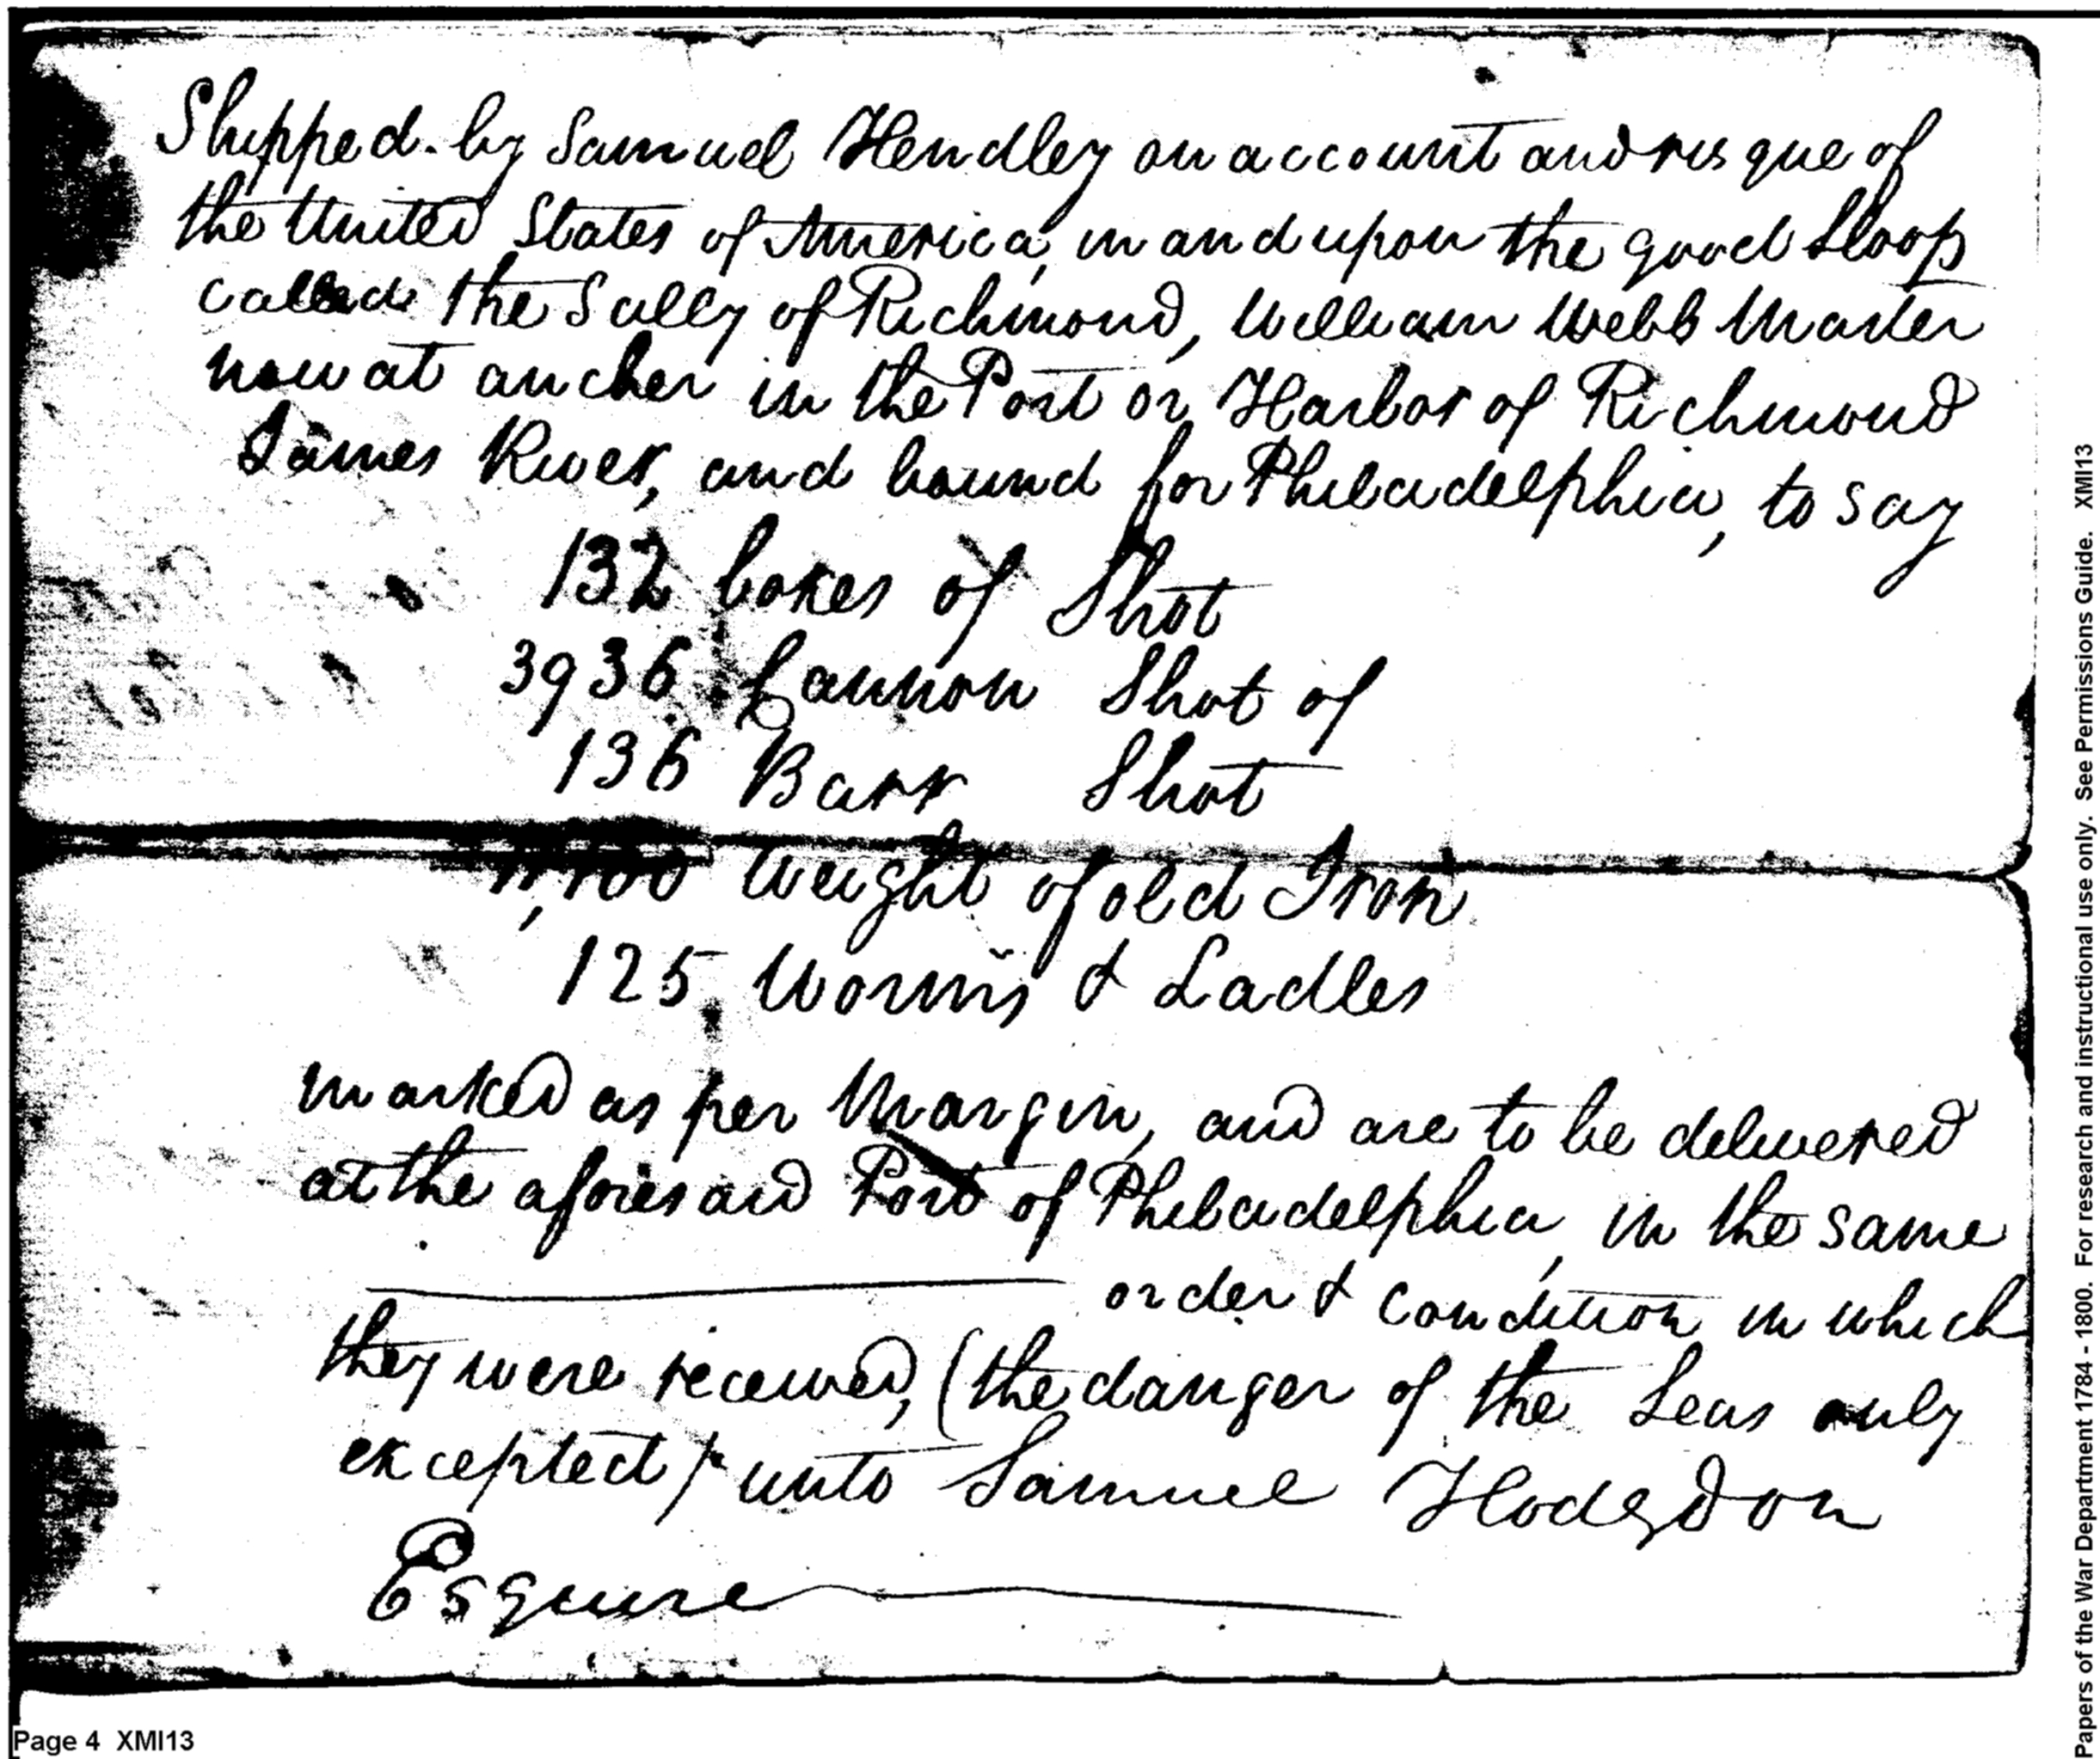 Shipped by Samuel Hendley on account and risque of
the United States of America, in and upon the good Sloop
called the Sally of Richmond, William Webb Master
now at ancher in the Port or Harbor of Richmond
James River, and bound for Philadelphia, to say
132 boxes of Shot
3936 Cannon Shot of
136 Barr Shot
Weight of old Iron
125 Worms & Ladles
marked as per Margin, and are to be delivered
at the aforesaid Port of Philadelphia, in the same
order & Condition in which
they were received, (the danger of the Seas only
excepted) unto Samuel Hodgdon
Esquire
Page 4 XMI13
Papers of the War Department 1784 - 1800. For research and instructional use only. See Permissions Guide. XMI13